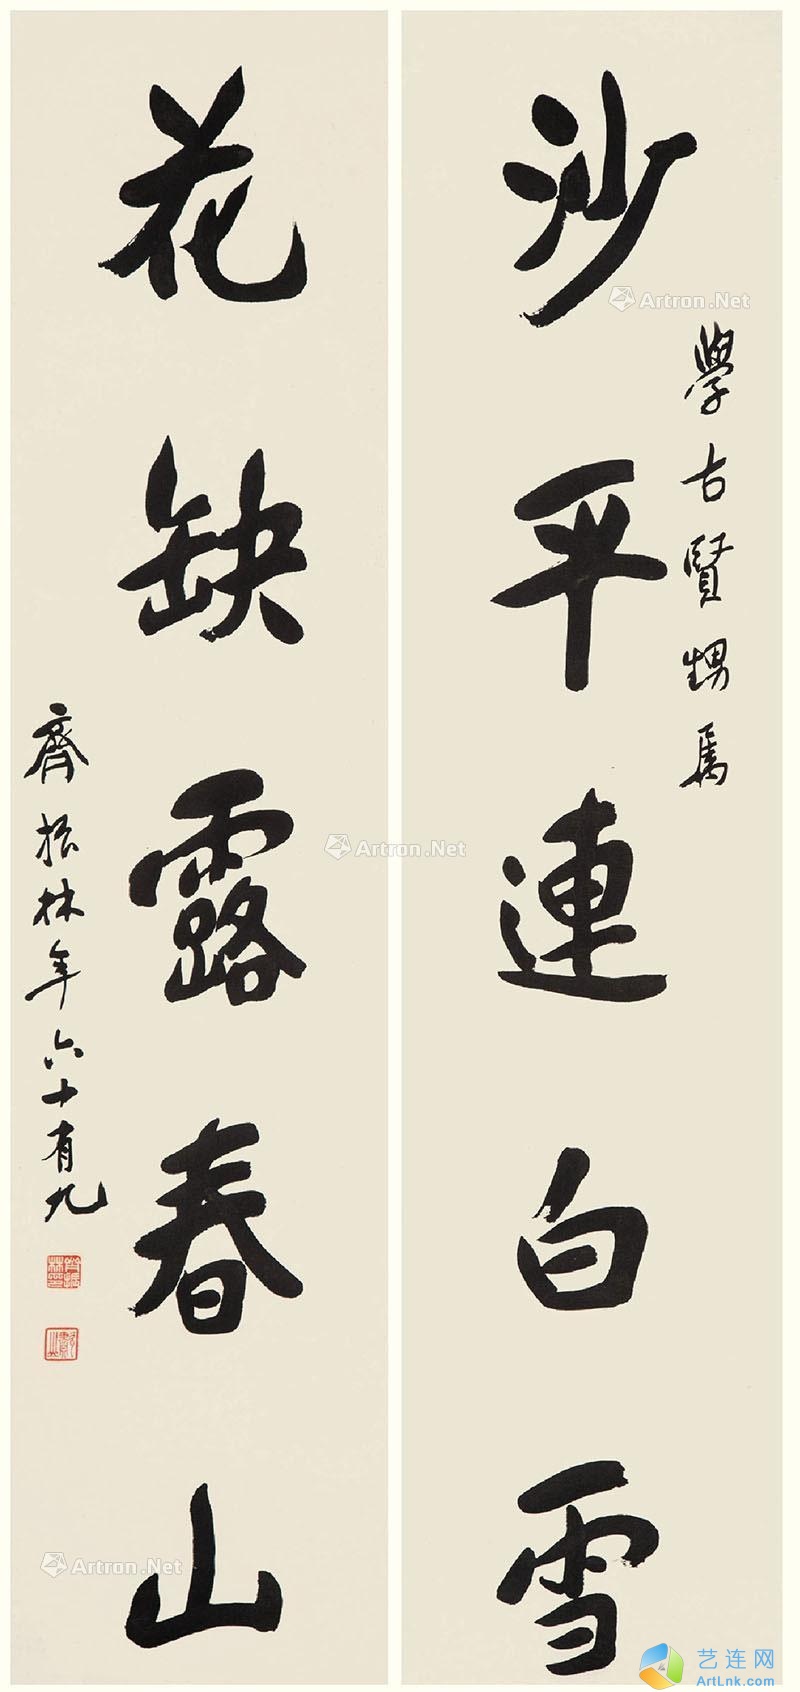 沙平連白雪
學古賢甥屬
花缺露春山
齊振林年六十有九
Artron.Net
Artron.Net
Artron.Net
艺连网
ArtLnk.com